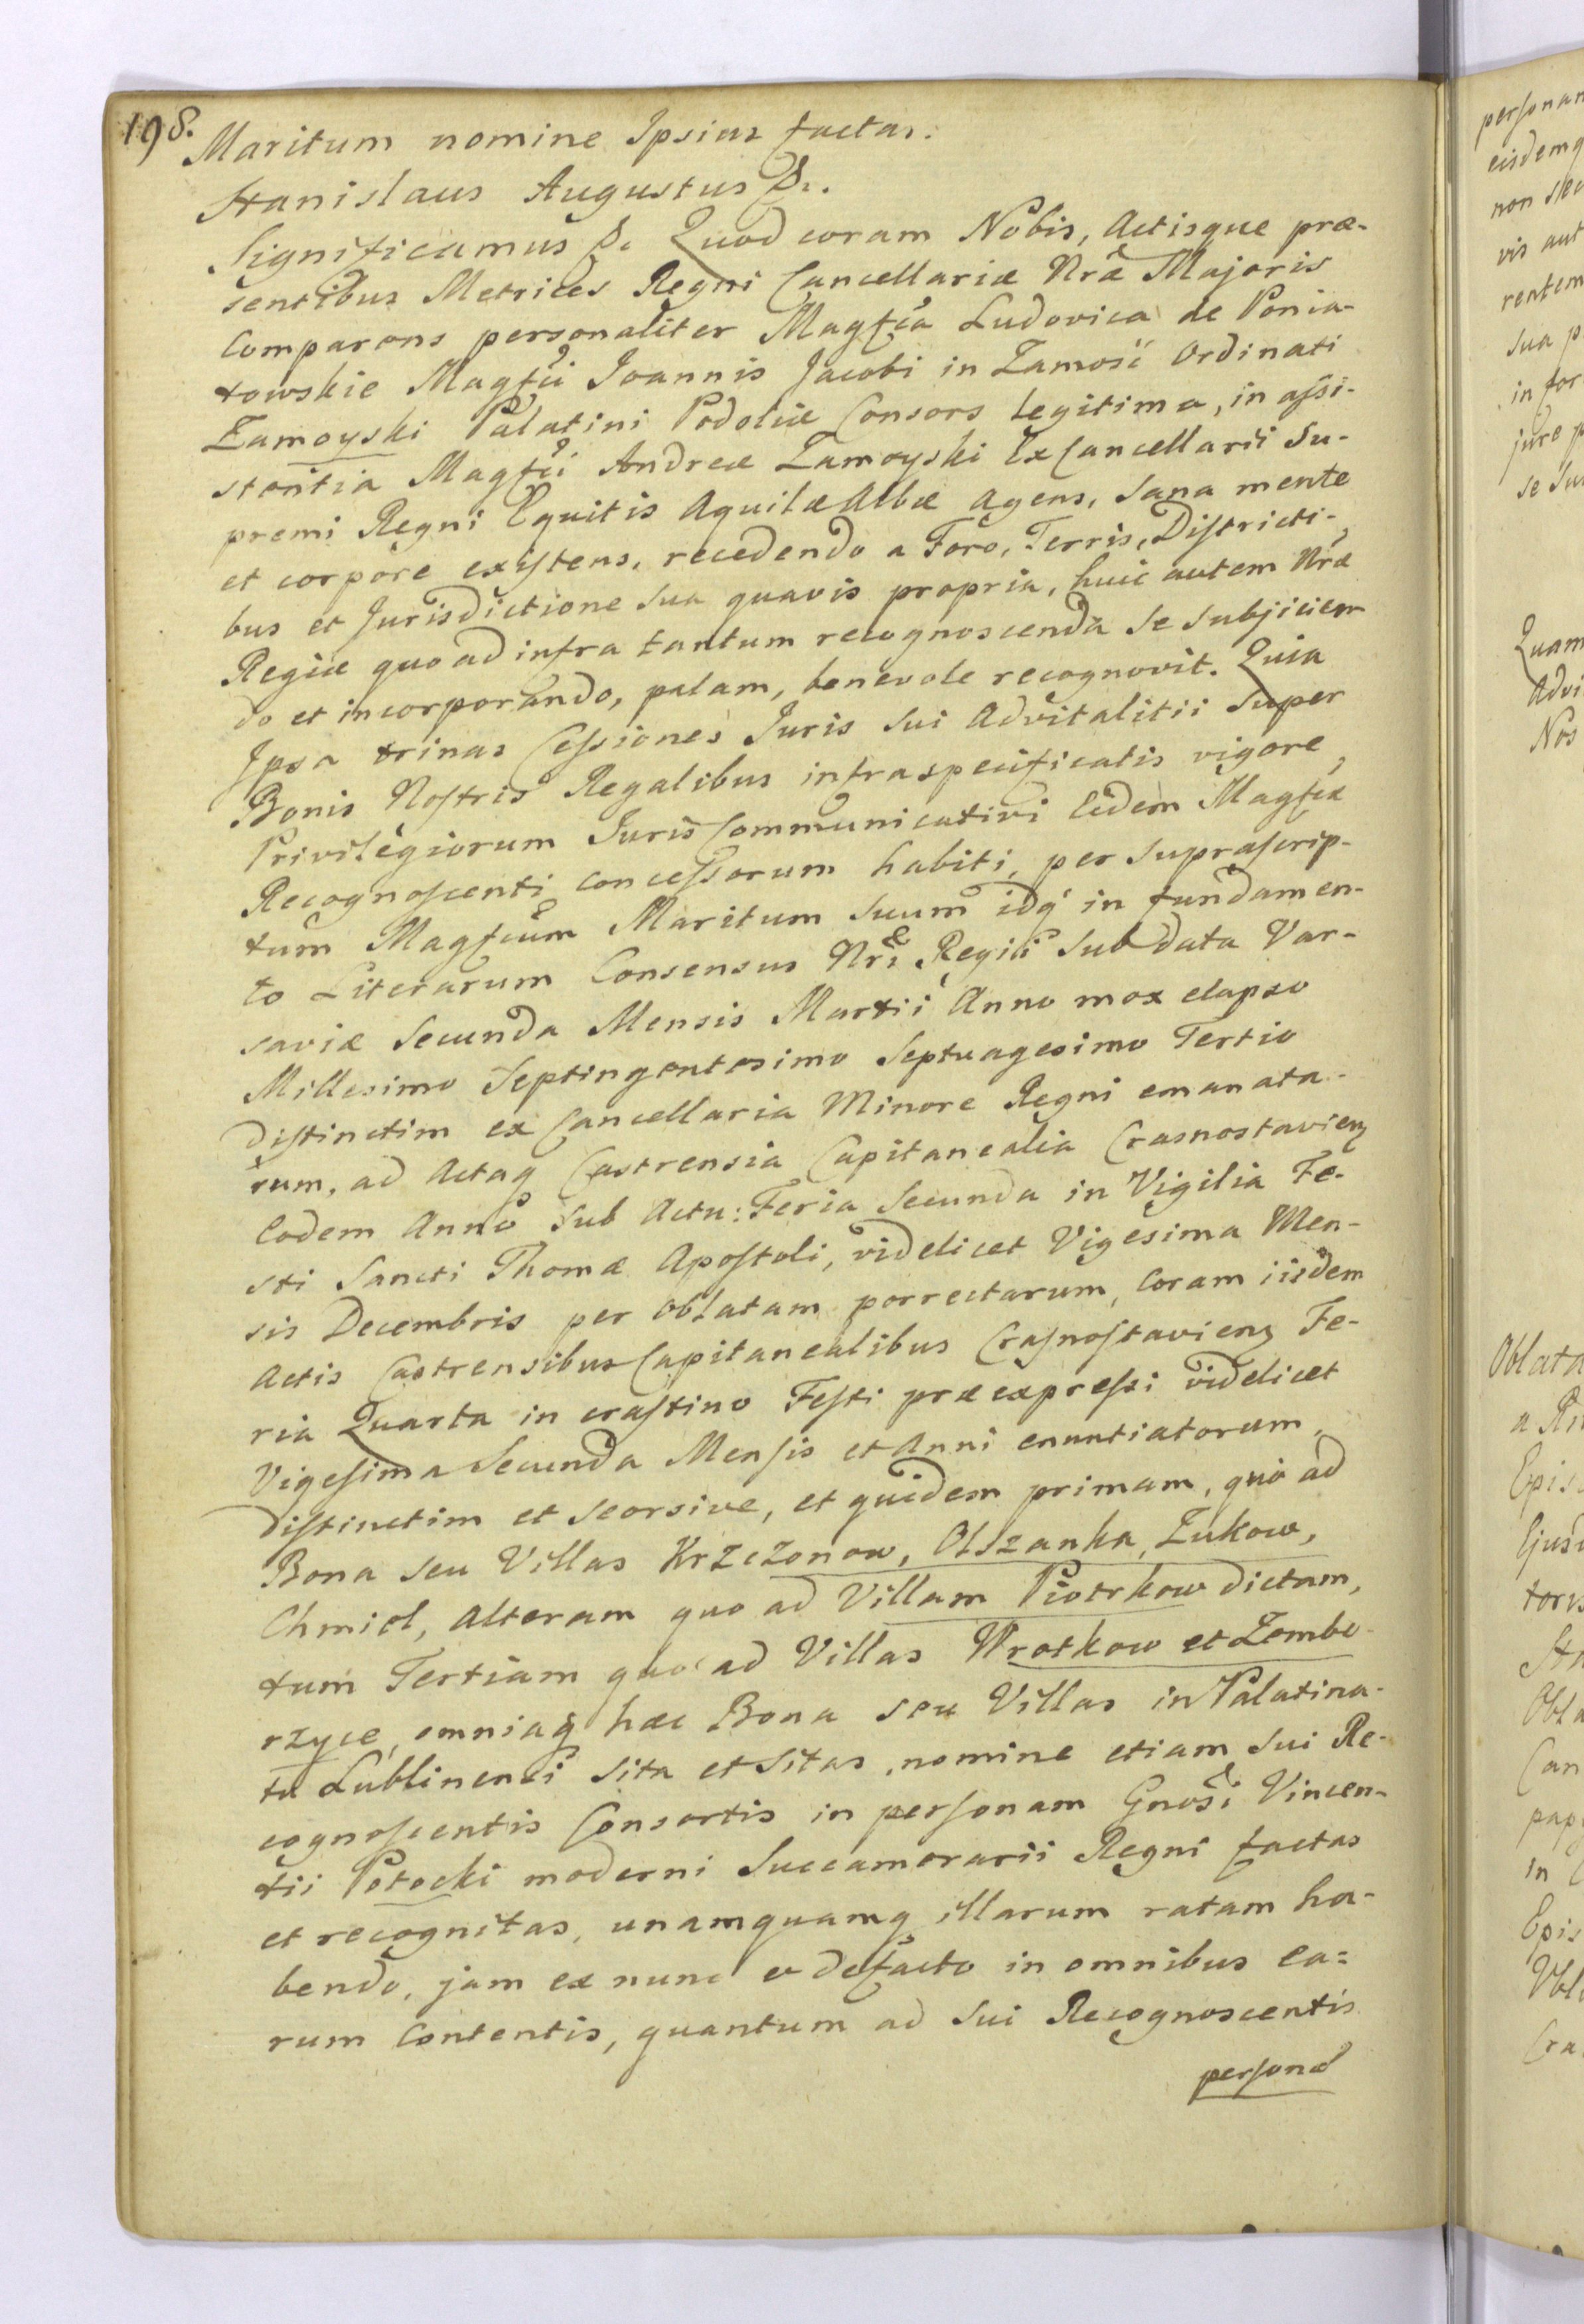 198.
Maritum nomine Ipsius factas.
Stanislaus Augustus &c.
Significamus &c Quod coram Nobis, Actisque præ-
sentibus Metrices Regni Cancellariæ Nræ Majoris
Comparens personaliter Magfca Ludovica de Ponia-
towskie Magfci Joannis Jacobi in Zamość Ordinati
Zamoyski Palatini Podoliæ Consors Legitima, in assi-
stentia Magfci Andreæ Zamoyski ExCancellarii Su-
premi Regni Equitis Aquilæ Albæ Agens, Sana mente
et corpore existens, recedendo a Foro, Terris, Districti-
bus et Jurisdictione Sua quavis propria, huic autem Nræ
Regiæ quo ad infra tantum recognoscenda se subjicien
do et incorporando, palam, benevole recognovit. Quia
Ipsa trinas Cessiones Juris Sui Advitalitii Super
Bonis Nostris Regalibus infraspecificatis vigore
Privilegiorum Juris Communicativi Eidem Magfcæ
Recognoscenti concessorum habiti, per Suprascrip-
tum Magfcum Maritum Suum idq in fundamen-
to Literarum Consensus Nri Regii Sub data Var-
saviæ Secunda Mensis Martii Anno mox elapso
Millesimo Septingentesimo Septuagesimo Tertio
distinctim ex Cancellaria Minore Regni emanata-
rum, ad Actaq Castrensia Capitanealia Crasnostavienz
Eodem Anno Sub Actu: Feria Secunda in Vigilia Fe-
sti Sancti Thomæ Apostoli, videlicet Vigesima Men-
sis Decembris per Oblatam porrectarum, Coram iisdem
Actis Castrensibus Capitanealibus Crasnostavienz Fe-
ria Quarta in crastino Festi præexpressi videlicet
Vigesima Secunda Mensis et Anni enuntiatorum,
distinctim et Seorsive, et quidem primam, quo ad
Bona seu Villas Krzczonow, Olszanka, Zukow,
Chmiel, Alteram quo ad Villam Piotrkow dictam,
tum Tertiam quo ad Villas Wrotkow et Zembo-
rzyce, omniaq hæc Bona seu Villas in Palatina-
tu Lublinensi Sita et Sitas, nomine etiam Sui Re-
cognoscentis Consortis in personam Gnosi Vincen-
tii Potocki moderni Succamerarii Regni factas
et recognitas, unamquamq illarum ratam ha-
bendo, jam ex nunc et defacto in omnibus ea=
rum Contentis, quantum ad Sui Recognoscentis
personæ
personam
eisdemq
non
vis aut
rentem
Sua p
in for
jure p
Se
Quam
Advi
Nos
Oblata
a
Epis
Ejusd
toris
Obla
Can
papi
in
Epis
Cra